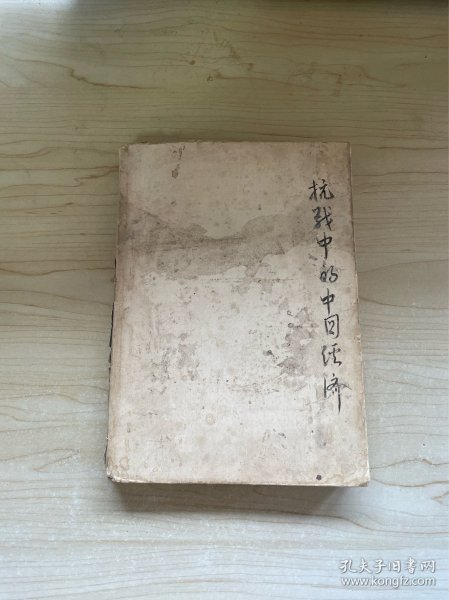 抗战中的中国经济
孔夫子旧书网
www.kongfz.com